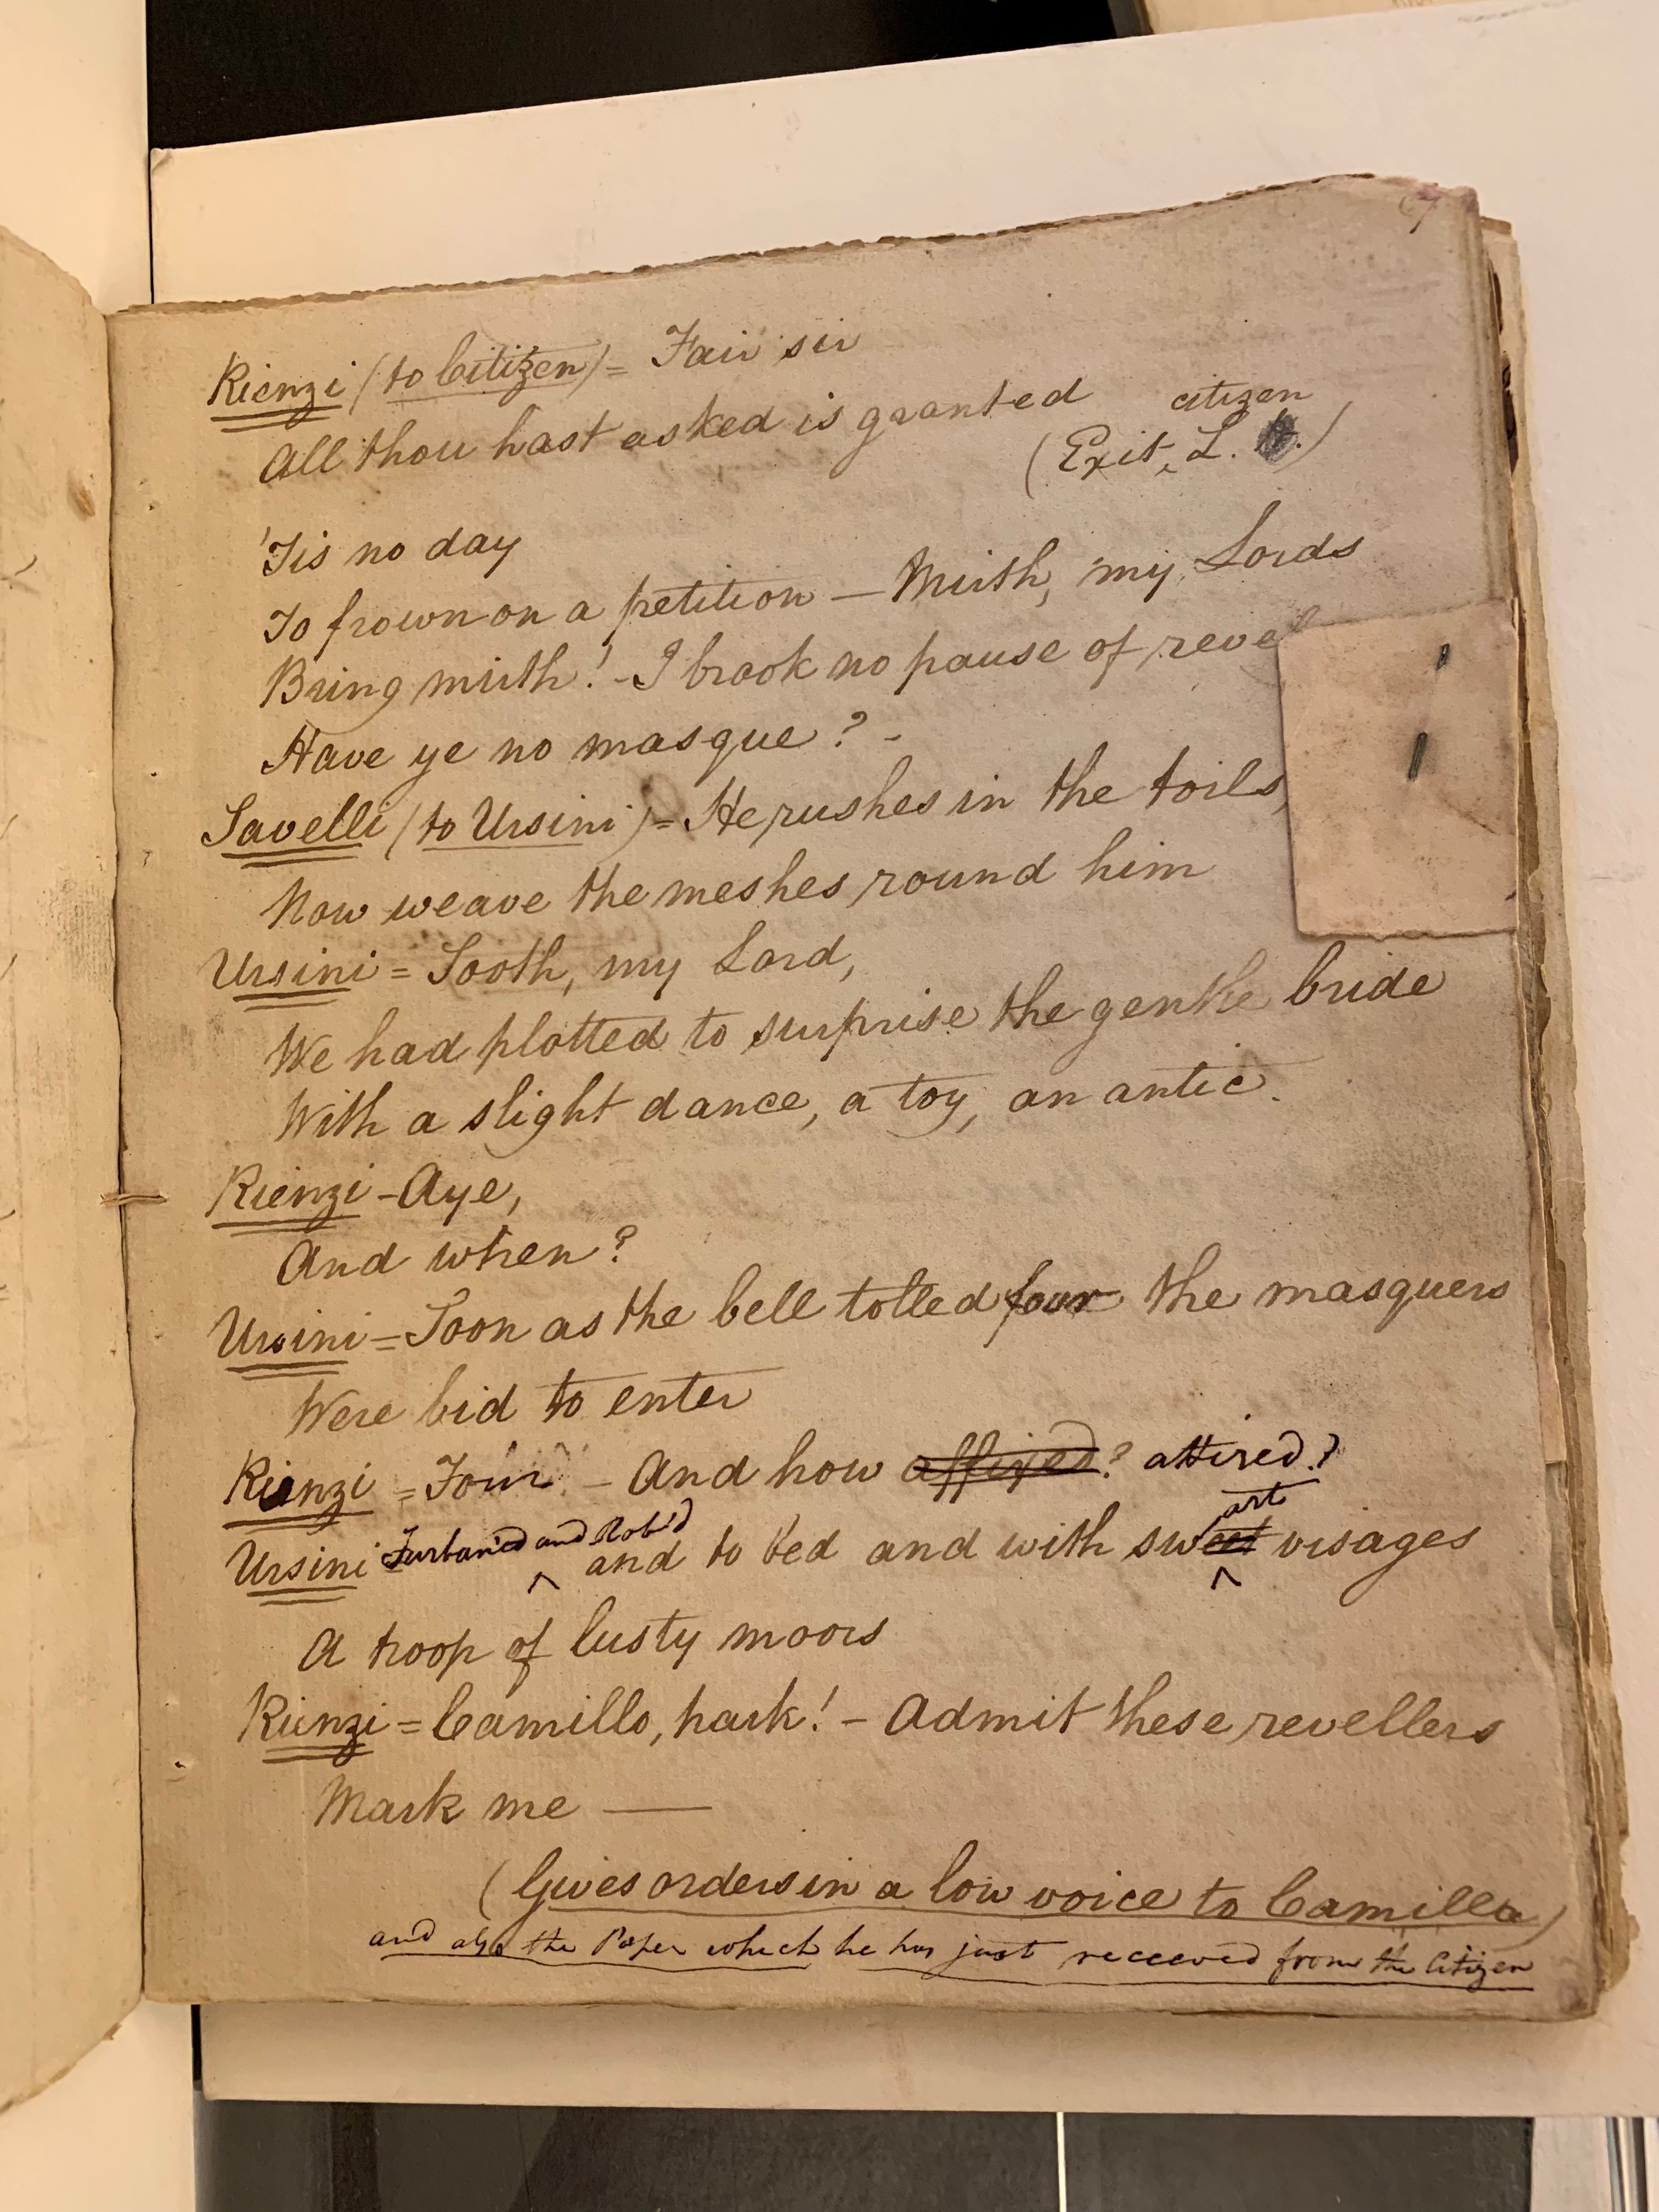 7
Rienzi (to Citizen) = Fair sir
All thou hast asked is granted
citizen
(Exit, L. .)
'Tis no day
To frown on a petition — Mirth, my Lords
Bring mirth! - I brook no pause of revel
Have ye no masque? -
Savelli (to Ursini) = He rushes in the toils,
Now weave the meshes round him
Ursini = Sooth, my Lord,
We had plotted to surprise the gentle bride
With a slight dance, a toy, an antic.
Rienzi - Aye,
And when?
Ursini = Soon as the bell tolled four the masquers
Were bid to enter
Rienzi = Four - And how affixed? attired?
art
Ursini Turbaned and Rob'd and to bed and with sweet visages
A troop of lusty moors
Rienzi = Camillo, hark! - Admit these revellers
Mark me —
(Gives orders in a low voice to Camillo)
and also the Paper which he has just received from the Citizen